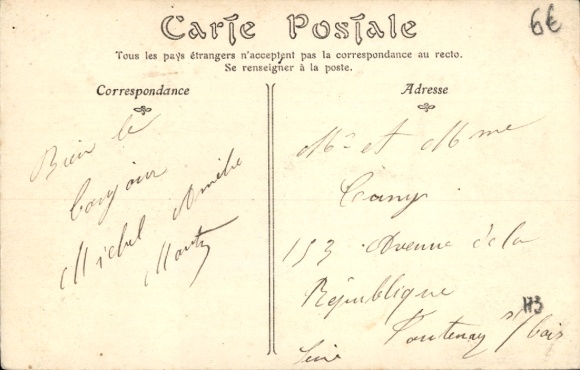 Carte Postale
6€
Tous les pays étrangers n'acceptent pas la correspondance au recto.
Se renseigner à la poste.
Correspondance
Bien le
bonjour
Michel Amélie
Adresse
Mr et Mme
153 Avenue de la
République
H3
Fontenay s/bois
Seine